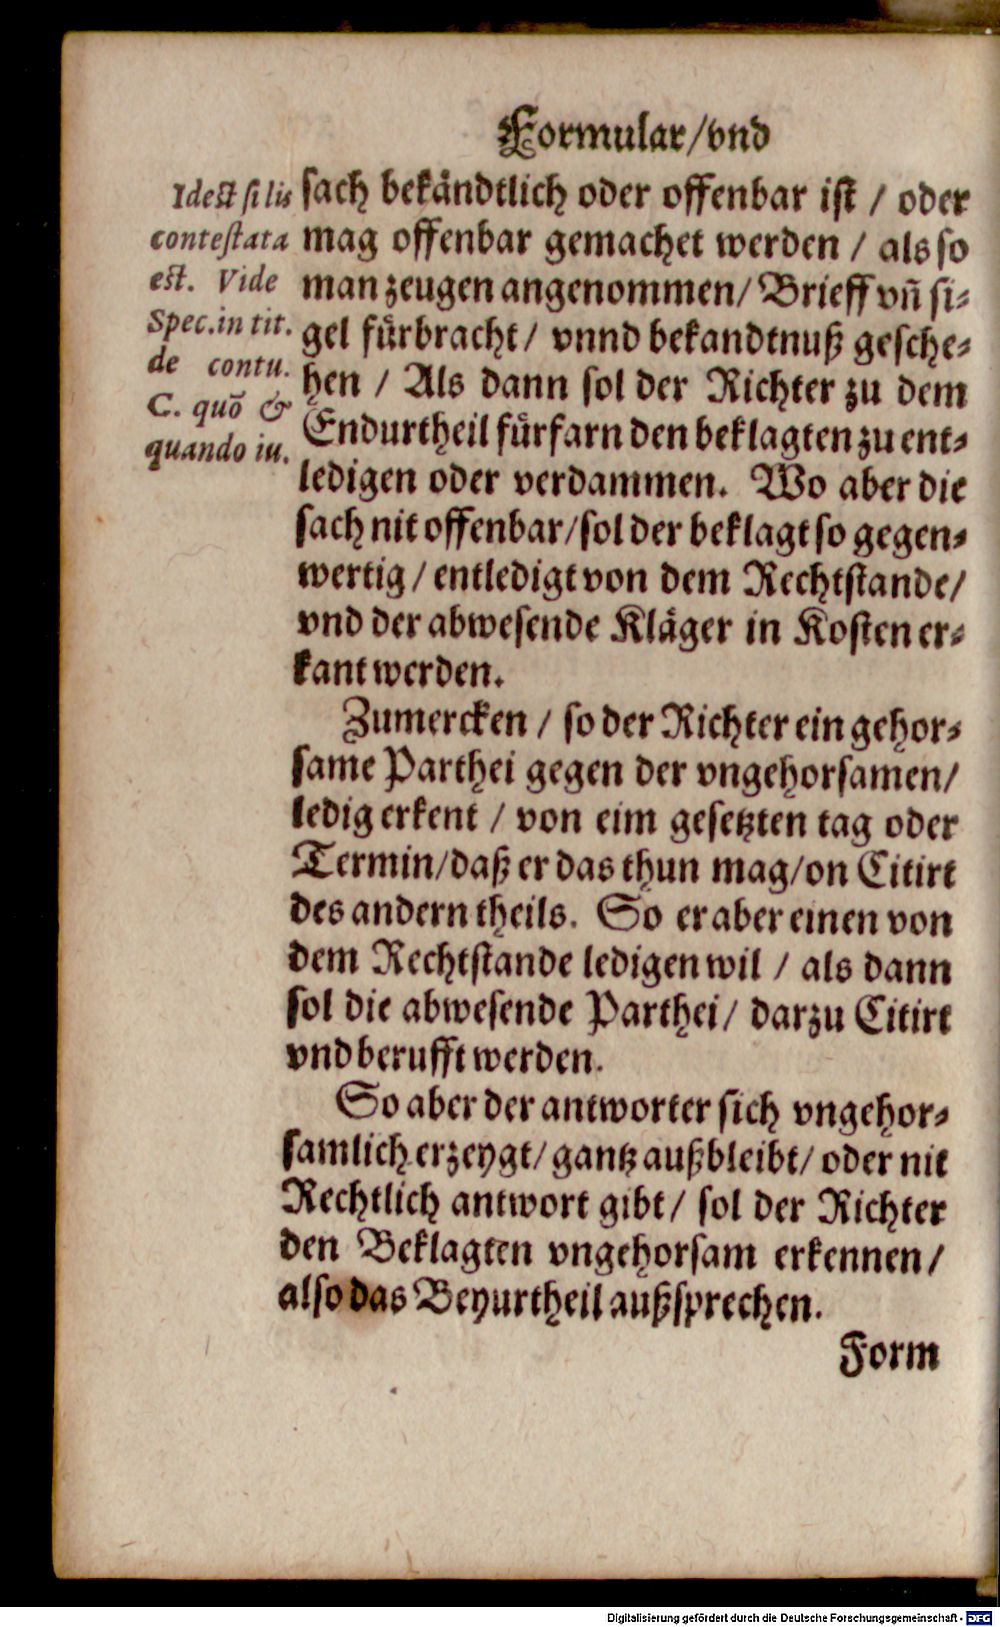 Formular/vnd
Idest si lis
contestata
est. Vide
Spec.in tit.
de contu.
C. quō &
quando iu.
sach bekändtlich oder offenbar ist / oder
mag offenbar gemachet werden / als so
man zeugen angenommen/ Brieff vñ si⸗
gel fürbracht/ vnnd bekandtnuß gesche⸗
hen / Als dann sol der Richter zu dem
Endurtheil fürfarn den beklagten zu ent⸗
ledigen oder verdammen. Wo aber die
sach nit offenbar/sol der beklagt so gegen⸗
wertig/ entledigt von dem Rechtstande/
vnd der abwesende Kläger in Kosten er⸗
kant werden.
Zumercken / so der Richter ein gehor⸗
same Parthei gegen der vngehorsamen/
ledig erkent / von eim gesetzten tag oder
Termin/daß er das thun mag/on Citirt
des andern theils. So er aber einen von
dem Rechtstande ledigen wil / als dann
sol die abwesende Parthei/ darzu Citirt
vnd berufft werden.
So aber der antworter sich vngehor⸗
samlich erzeygt/ gantz außbleibt/ oder nit
Rechtlich antwort gibt/ sol der Richter
den Beklagten vngehorsam erkennen/
also das Beyurtheil außsprechen.
Form
Digitalisierung gefördert durch die Deutsche Forschungsgemeinschaft - DFG